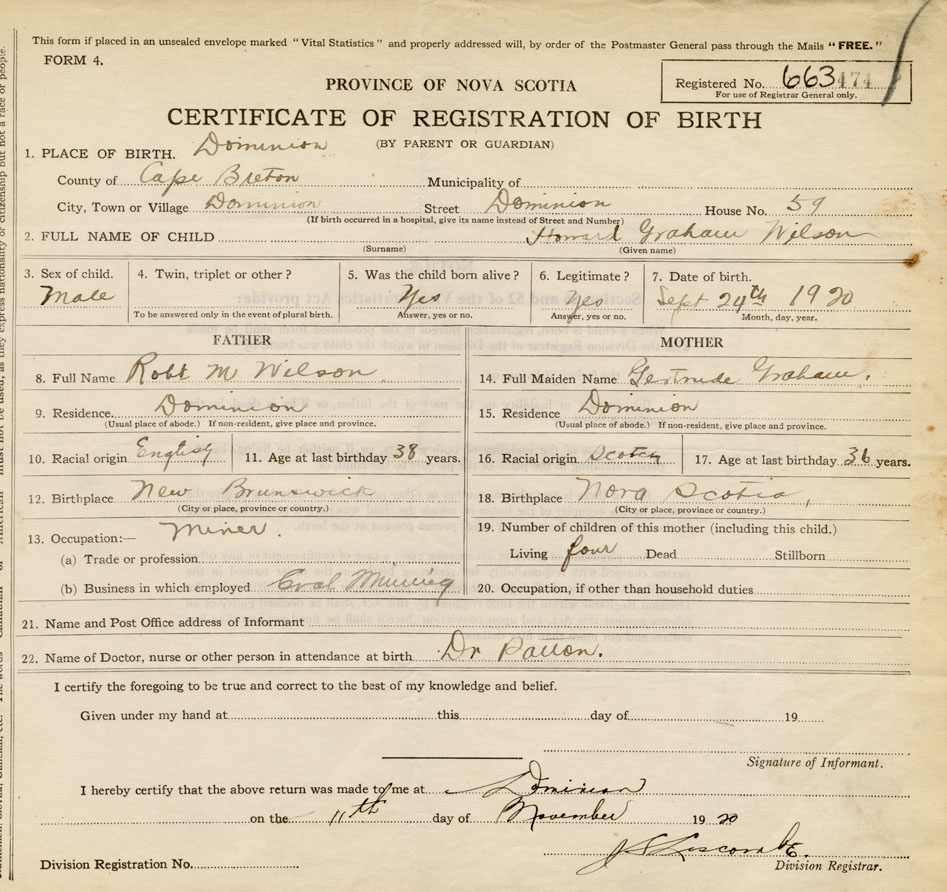 This form if placed in an unsealed envelope marked "Vital Statistics" and properly addressed will, by order of the Postmaster General pass through the Mails "FREE."
FORM 4.
PROVINCE OF NOVA SCOTIA
Registered No. 663 474
For use of Registrar General only.
CERTIFICATE OF REGISTRATION OF BIRTH
(BY PARENT OR GUARDIAN)
1. PLACE OF BIRTH. Dominion
County of Cape Breton Municipality of
City, Town or Village Dominion Street Dominion House No. 59
(If birth occurred in a hospital, give its name instead of Street and Number)
2. FULL NAME OF CHILD Howard Graham Wilson
(Surname) (Given name)
3. Sex of child. 4. Twin, triplet or other? 5. Was the child born alive? 6. Legitimate? 7. Date of birth.
Male Yes Yes Sept 24th 1920
To be answered only in the event of plural birth. Answer, yes or no. Answer, yes or no. Month, day, year.
FATHER MOTHER
8. Full Name Robt M Wilson 14. Full Maiden Name Gertrude Graham.
9. Residence. Dominion 15. Residence Dominion
(Usual place of abode.) If non-resident, give place and province. (Usual place of abode.) If non-resident, give place and province.
10. Racial origin English 11. Age at last birthday 38 years. 16. Racial origin Scotch 17. Age at last birthday 36 years.
12. Birthplace New Brunswick 18. Birthplace Nova Scotia,
(City or place, province or country.) (City or place, province or country.)
13. Occupation:— Miner. 19. Number of children of this mother (including this child.)
(a) Trade or profession Living four Dead Stillborn
(b) Business in which employed Coal Mining 20. Occupation, if other than household duties
21. Name and Post Office address of Informant
22. Name of Doctor, nurse or other person in attendance at birth Dr Patton.
I certify the foregoing to be true and correct to the best of my knowledge and belief.
Given under my hand at this day of 19
Signature of Informant.
I hereby certify that the above return was made to me at Dominion
on the 11th day of November 1920
Division Registration No. Division Registrar.